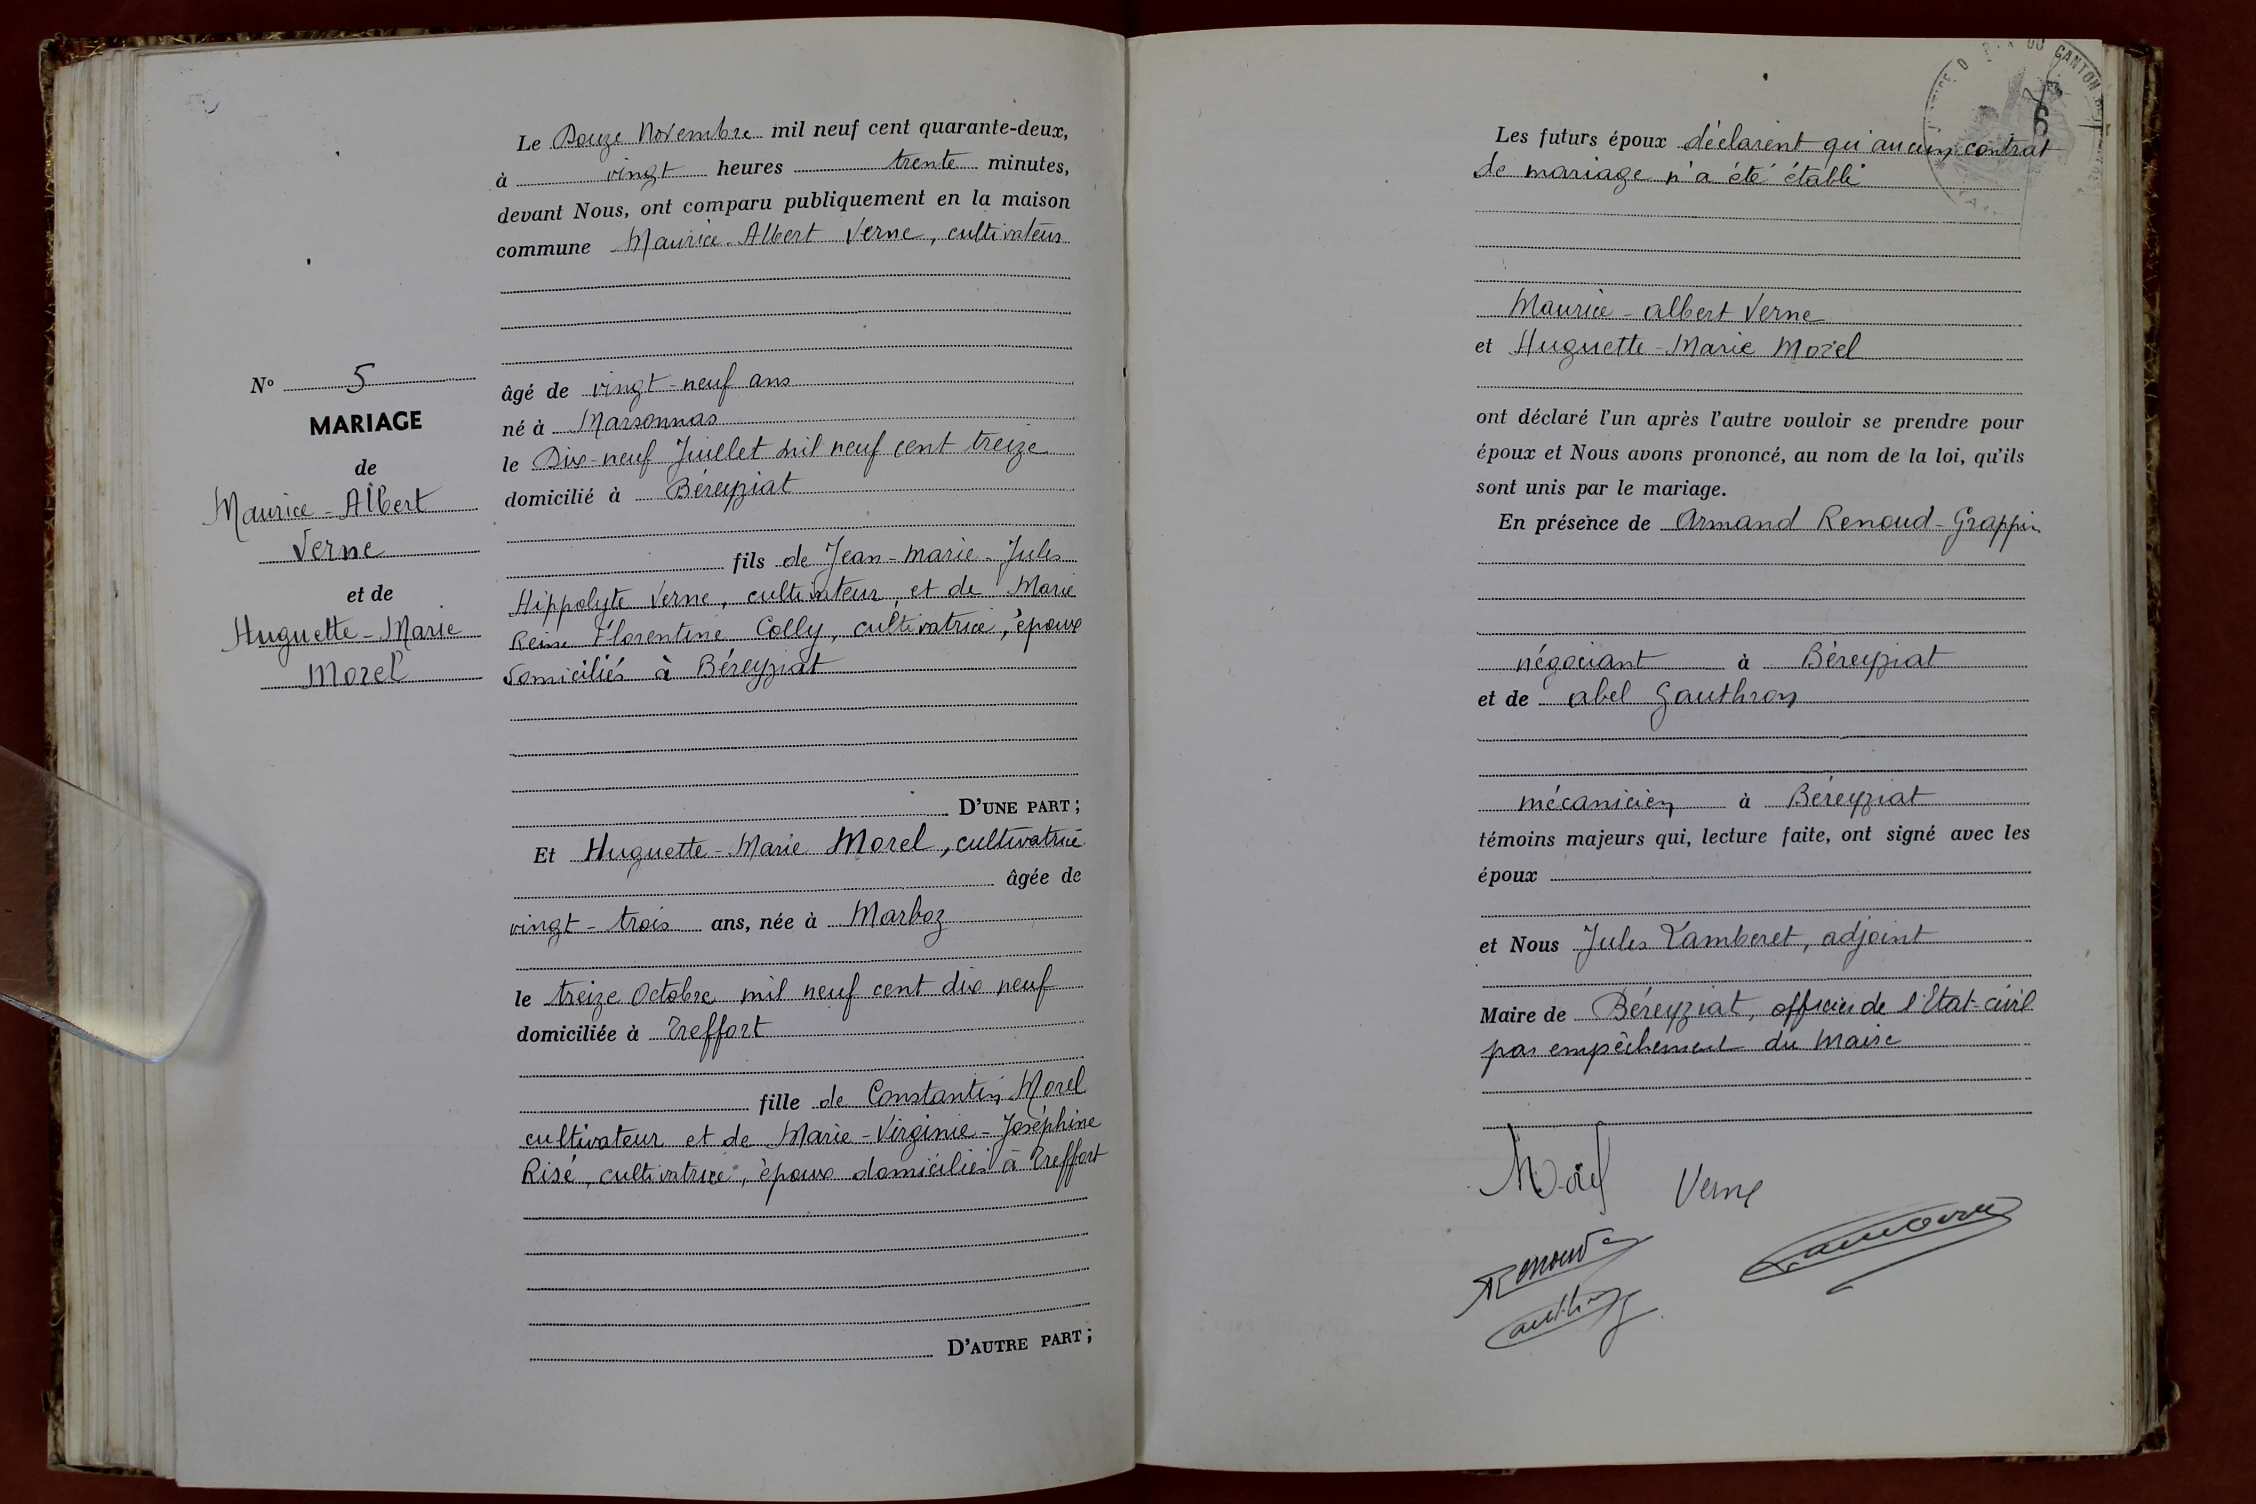 Le Douze Novembre mil neuf cent quarante-deux,
à vingt heures trente minutes,
devant Nous, ont comparu publiquement en la maison
commune Maurice-Albert Verne, cultivateur
âgé de vingt-neuf ans
né à Marsonnas
le Dix-neuf Juillet mil neuf cent treize
domicilié à Béreyziat
fils de Jean-Marie-Jules
Hippolyte Verne, cultivateur, et de Marie
Reine Florentine Colly, cultivatrice, époux
domiciliés à Béreyziat
D'UNE PART ;
Et Huguette-Marie Morel, cultivatrice
âgée de
vingt-trois ans, née à Marboz
le treize Octobre mil neuf cent dix neuf
domiciliée à Treffort
fille de Constantin Morel
cultivateur et de Marie-Virginie-Joséphine
Risé, cultivatrice, époux domiciliés à Treffort
D'AUTRE PART ;
No 5
MARIAGE
de
Maurice-Albert
Verne
et de
Huguette-Marie
Morel
CANTON
6
Les futurs époux déclarent qu'aucun contrat
de mariage n'a été établi
Maurice-Albert Verne
et Huguette-Marie Morel
ont déclaré l'un après l'autre vouloir se prendre pour
époux et Nous avons prononcé, au nom de la loi, qu'ils
sont unis par le mariage.
En présence de Armand Renoud-Grappin
négociant à Béreyziat
et de Abel Gauthron
mécanicien à Béreyziat
témoins majeurs qui, lecture faite, ont signé avec les
époux
et Nous Jules Lamberet, adjoint
Maire de Béreyziat, officier de l'Etat-civil
par empêchement du Maire
Morel Verne